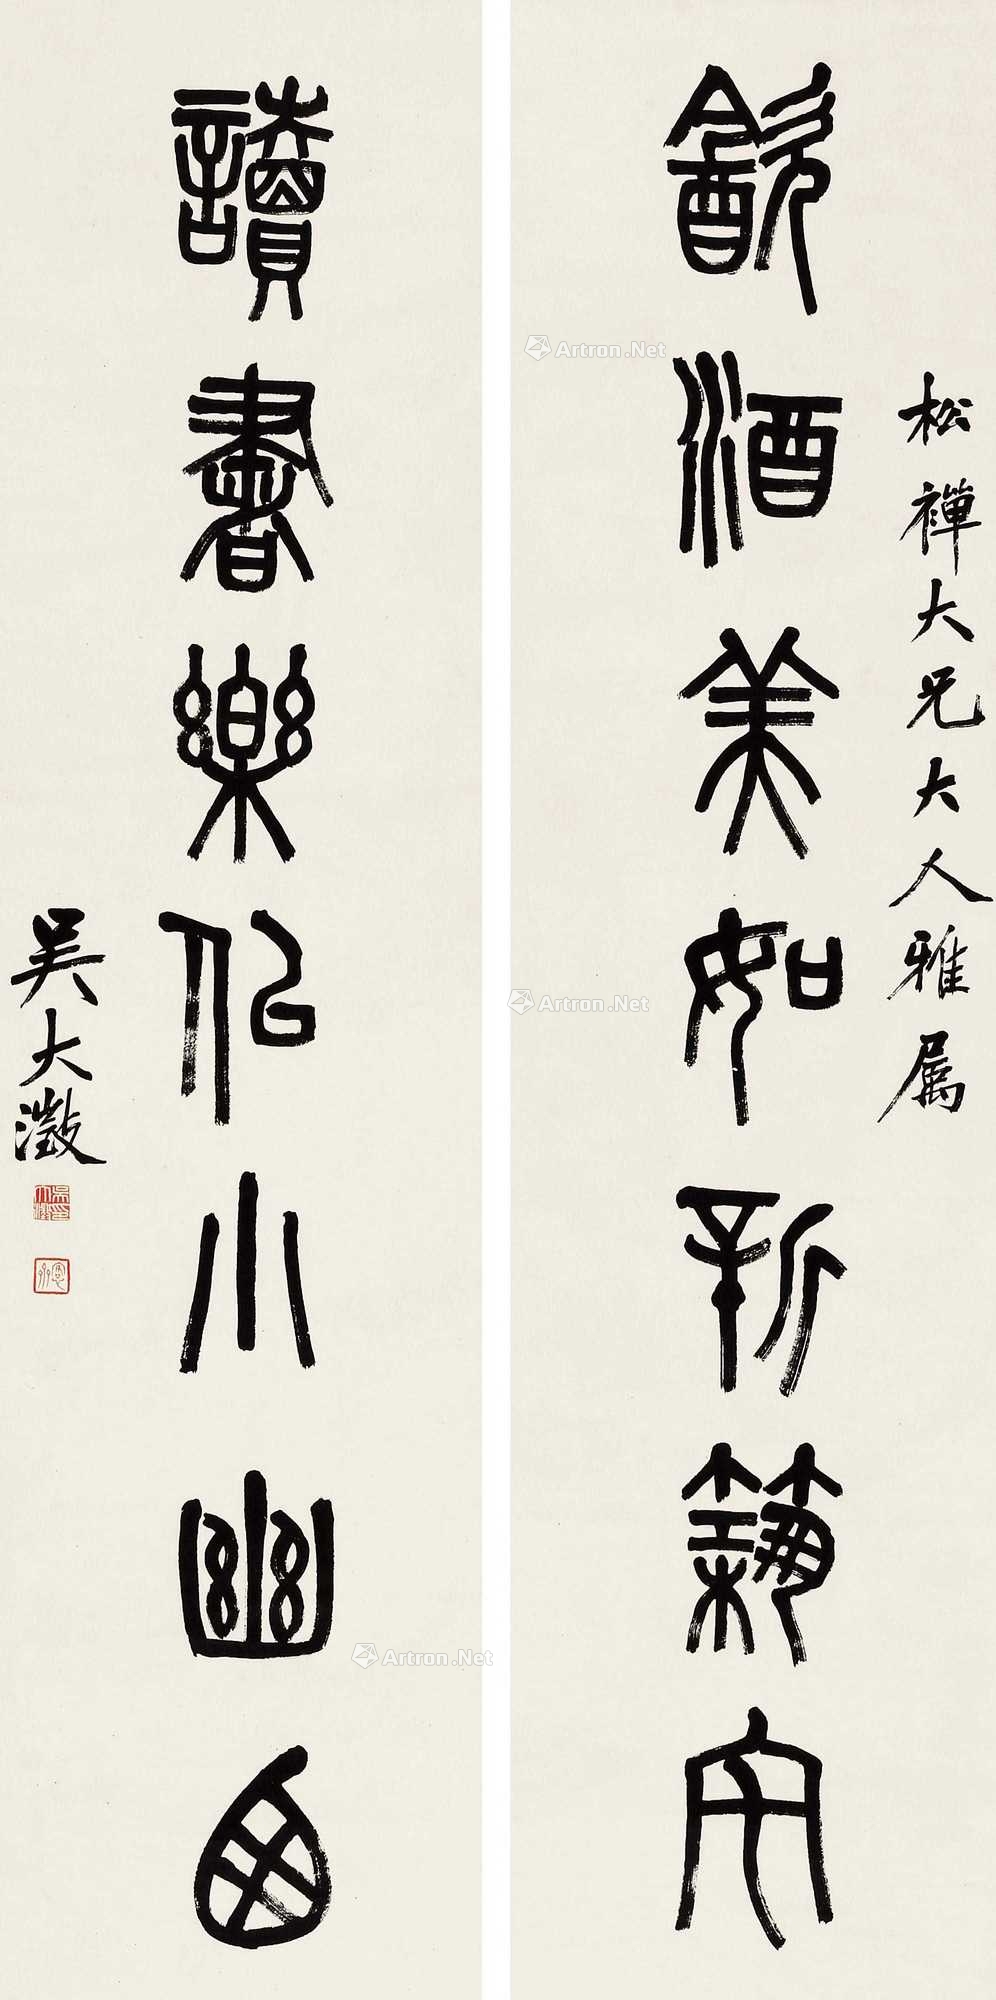 松禪大兄大人雅屬
㱃酒美如新築宅
讀書樂佀小幽囪
吳大澂
Artron.Net
Artron.Net
Artron.Net